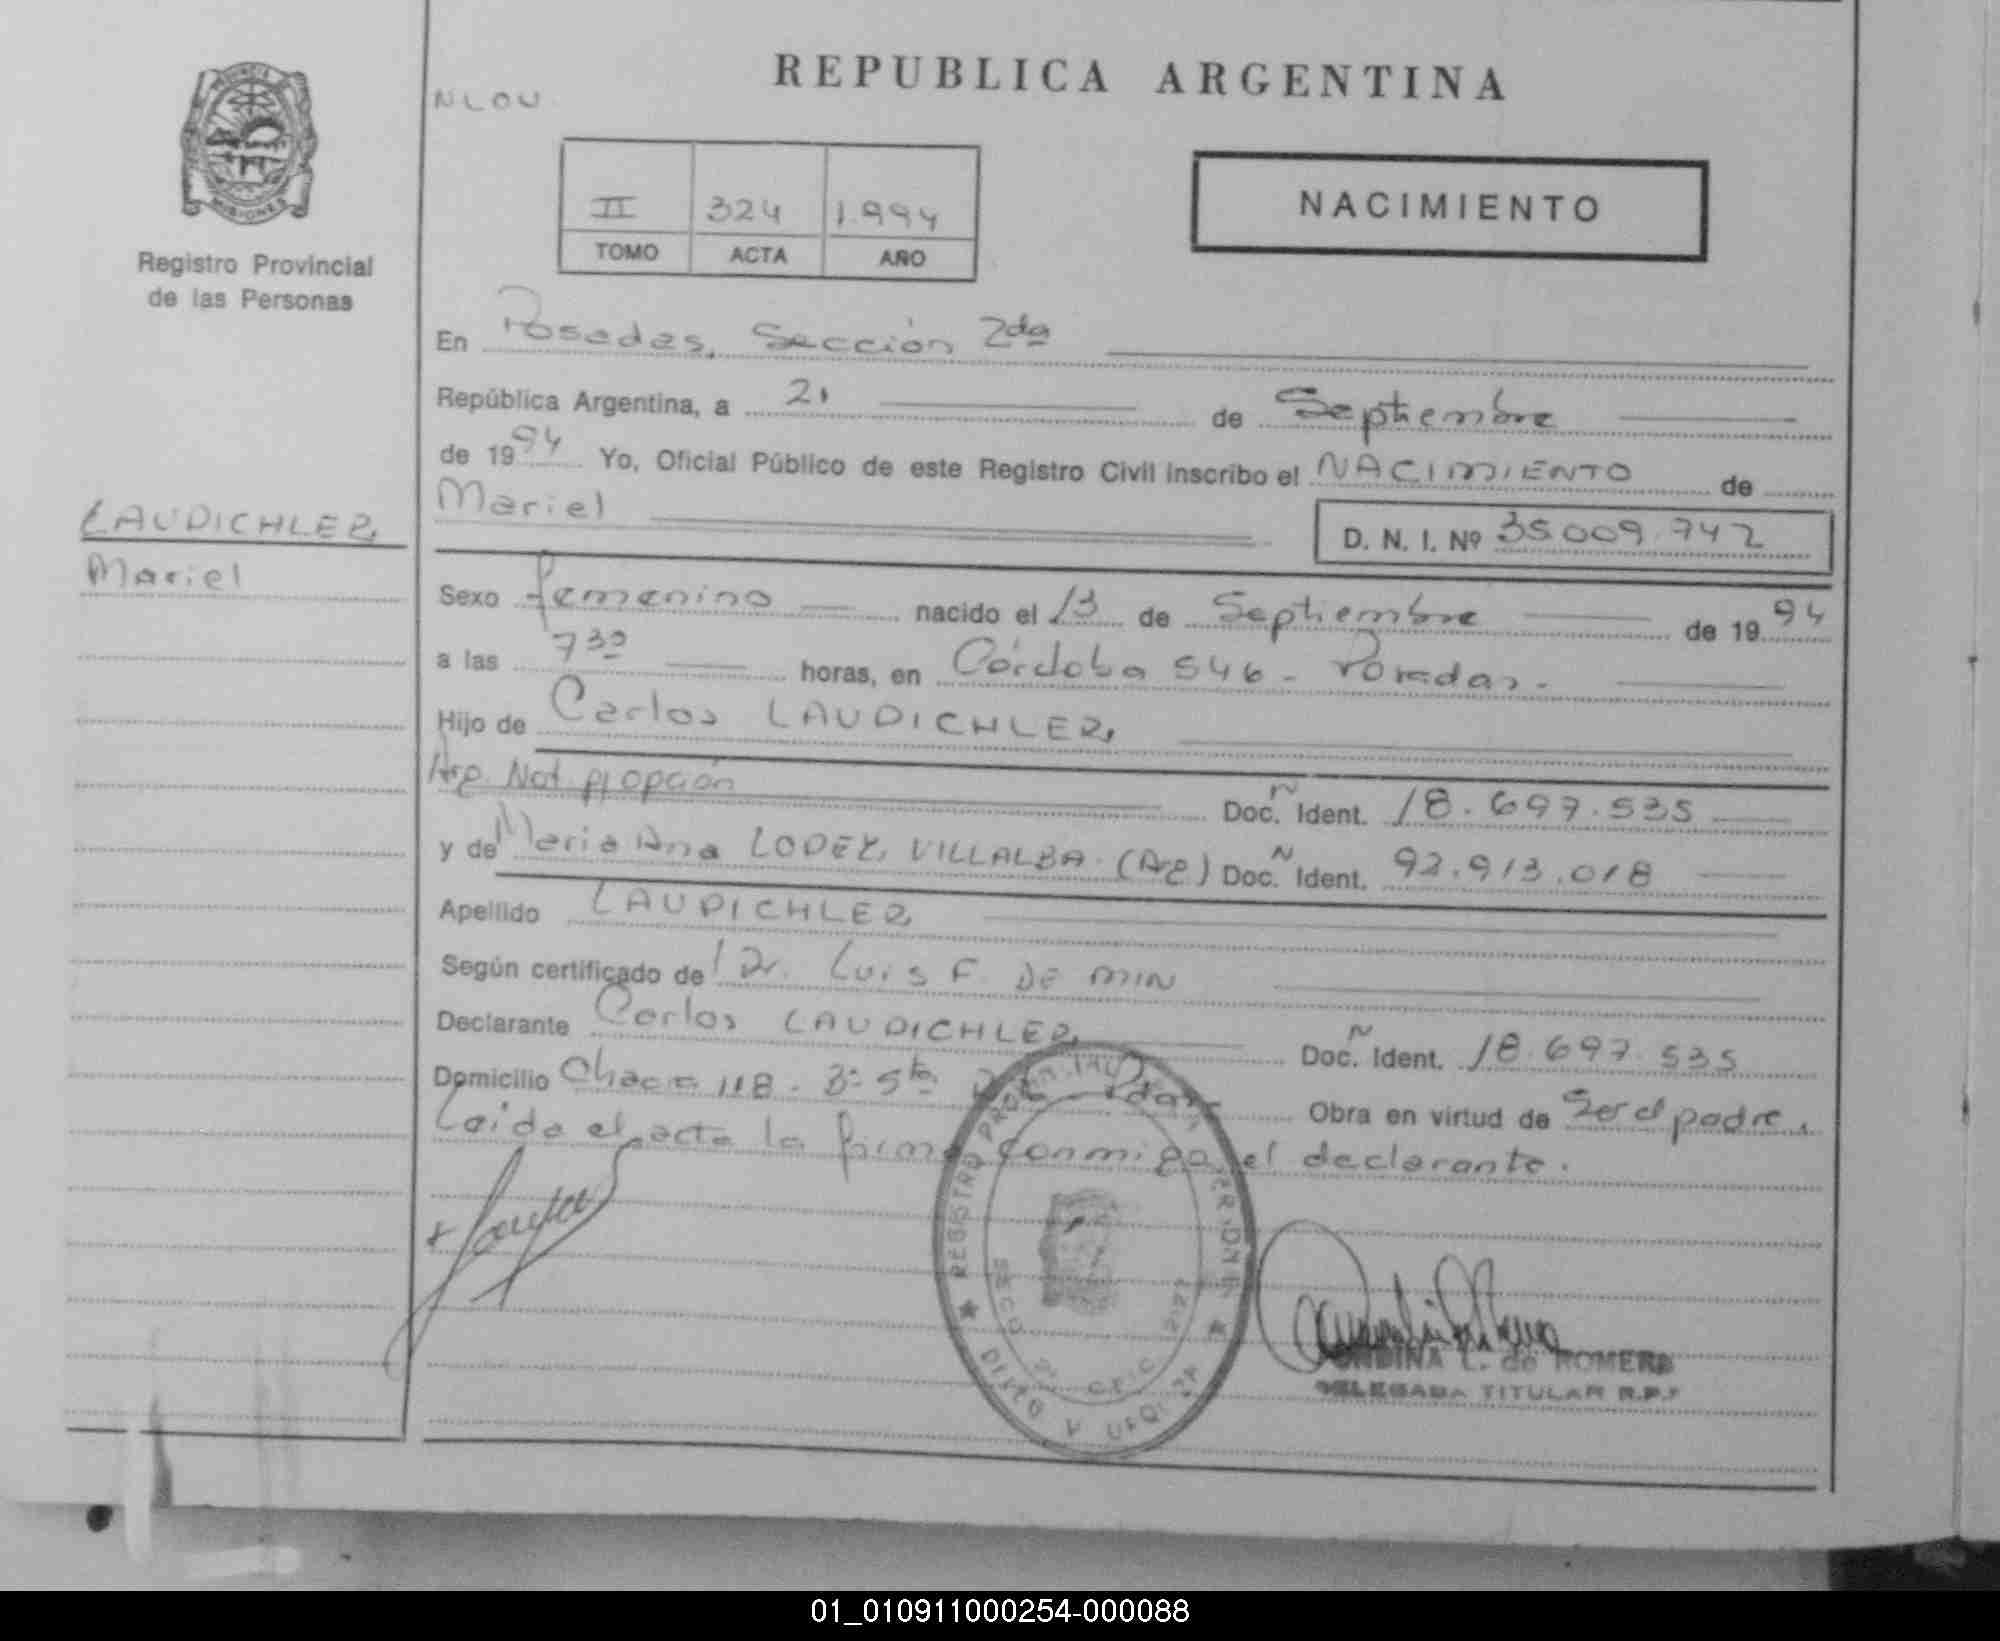 REPUBLICA ARGENTINA
NLOU
II 324 1.994
TOMO ACTA AÑO
NACIMIENTO
MISIONES
Registro Provincial
de las Personas
En Posadas, Sección 2da
República Argentina, a 21 de Septiembre
de 1994 Yo, Oficial Público de este Registro Civil inscribo el NACIMIENTO de
Mariel D. N. I. Nº 35.009.742
LAUDICHLER,
Mariel
Sexo femenino nacido el 13 de Septiembre de 1994
a las 7 30 horas, en Córdoba 546 - Posadas.
Hijo de Carlos LAUDICHLER,
Arg. Nat. p/opción Doc. N Ident. 18.697.535
y de Maria Ana LOPEZ, VILLALBA (Arg) Doc. N Ident. 92.913.018
Apellido LAUDICHLER
Según certificado del Dr. Luis F. DE MIN
Declarante Carlos LAUDICHLER, Doc. N Ident. 18.697.535
Domicilio Chacra 118 - Obra en virtud de Ser el padre.
Leida el acta la firma conmigo el declarante.
REGISTRO PROVINCIAL
L. de ROMERO
DELEGADA TITULAR R.P.P
01_010911000254-000088